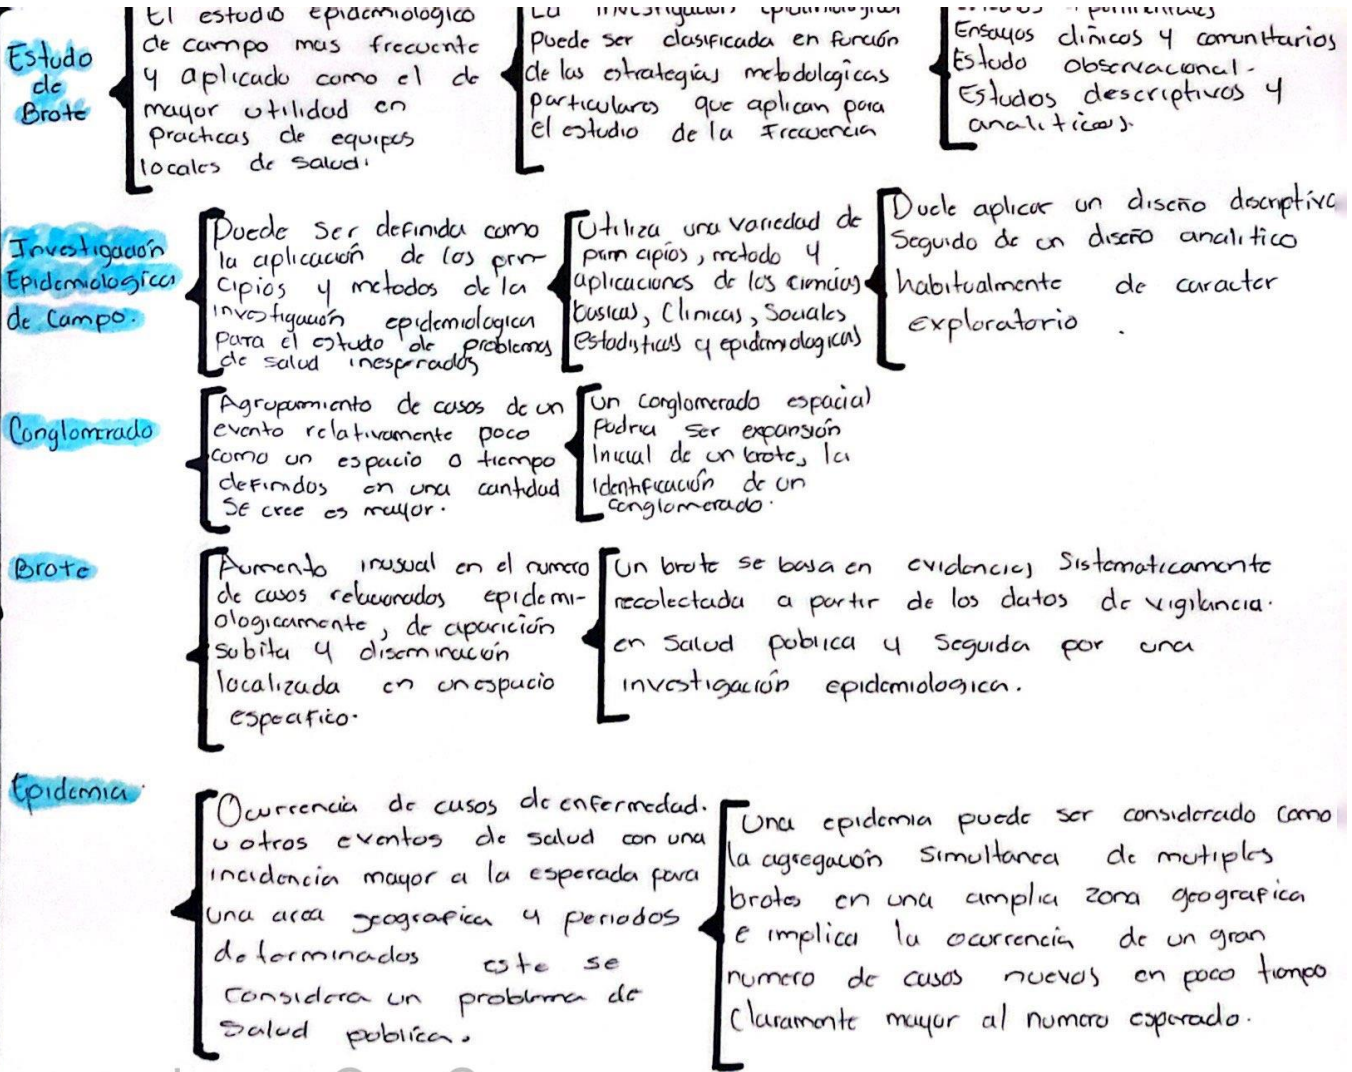 Estudo
de
Brote
El estudio epidemiológico
de campo mas frecuente
y aplicado como el de
mayor utilidad en
practicas de equipos
locales de salud.
La investigación epidemiologica
Puede ser clasificada en función
de las estrategias metodologicas
particulares que aplican para
el estudio de la Frecuencia
Ensayos clinicos y comunitarios
Estudo observacional.
Estudos descriptivos y
analiticos.
Investigación
Epidemiologica
de Campo.
Puede Ser definida como
la aplicación de los prin-
cipios y metodos de la
investigación epidemiologica
para el estudo de problemas
de salud inesperados
Utiliza una variedad de
principios, metodo y
aplicaciones de las ciencias
basicas, Clinicas, Sociales
estadisticas y epidemiologicas
Duele aplicar un diseño descriptiva
Seguido de un diseño analitico
habitualmente de caracter
exploratorio.
Conglomerado
Agrupamiento de casos de un
evento relativamente poco
como un espacio o tiempo
definidos en una cantidad
Se cree es mayor.
un conglomerado espacial
Podria ser expansión
Inicial de un brote, la
identificación de un
conglomerado.
Brote
Aumento inusual en el numero
de casos relacionados epidemi-
ologicamente, de aparición
subita y diseminación
localizada en un espacio
especifico.
Un brote se basa en evidencias Sistematicamente
recolectada a partir de los datos de vigilancia.
en Salud publica y Seguida por una
investigación epidemiologica.
Epidemia
Ocurrencia de casos de enfermedad.
u otros eventos de salud con una
incidencia mayor a la esperada para
una area geografica y periodos
determinados este se
Considera un problema de
Salud publica.
Una epidemia puede ser considerado Como
la agregación Simultanea de mutiples
brotes en una amplia zona geografica
e implica la ocurrencia de un gran
numero de casos nuevos en poco tiempo
Claramente mayor al numero esperado.